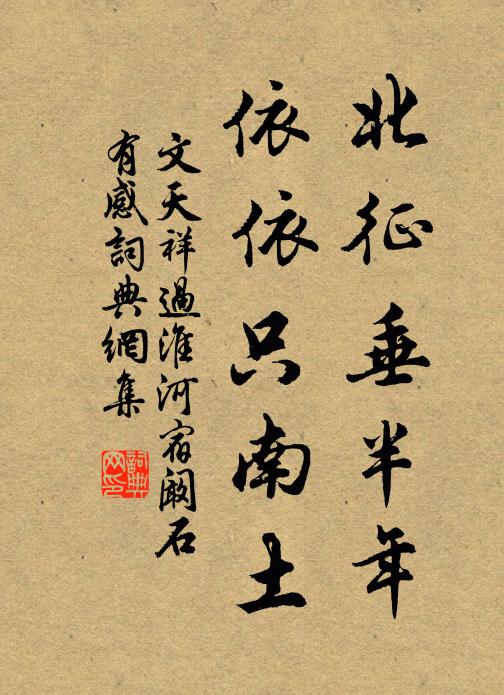 北征垂半年
依依只南土
文天祥過淮河宿闞石
有感詞典網集
詞典
网印